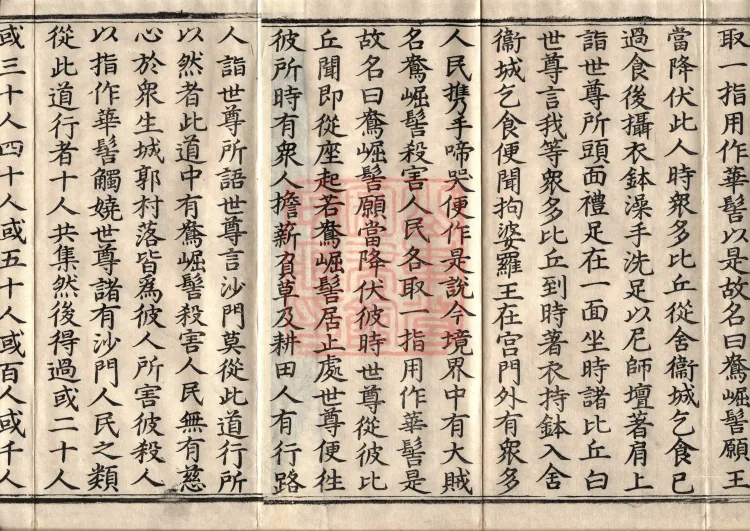 取一指用作華髻以是故名曰鴦崛髻願王
當降伏此人時衆多比丘從舍衞城乞食已
過食後攝衣鉢澡手洗足以尼師壇著肩上
詣世尊所頭面禮足在一面坐時諸比丘白
世尊言我等衆多比丘到時著衣持鉢入舍
衞城乞食便聞拘婆羅王在宮門外有衆多
人民攜手啼哭便作是説今境界中有大賊
名鴦崛髻殺害人民各取一指用作華髻是
故名曰鴦崛髻願當降伏彼時世尊從彼比
丘聞即從座起若鴦崛髻居止處世尊便往
彼所時有衆人擔薪負草及耕田人有行路
人詣世尊所語世尊言沙門莫從此道行所
以然者此道中有鴦崛髻殺害人民無有慈
心於衆生城郭村落皆爲彼人所害彼殺人
以指作華髻觸嬈世尊諸有沙門人民之類
從此道行者十人共集然後得過或二十人
或三十人四十人或五十人或百人或千人